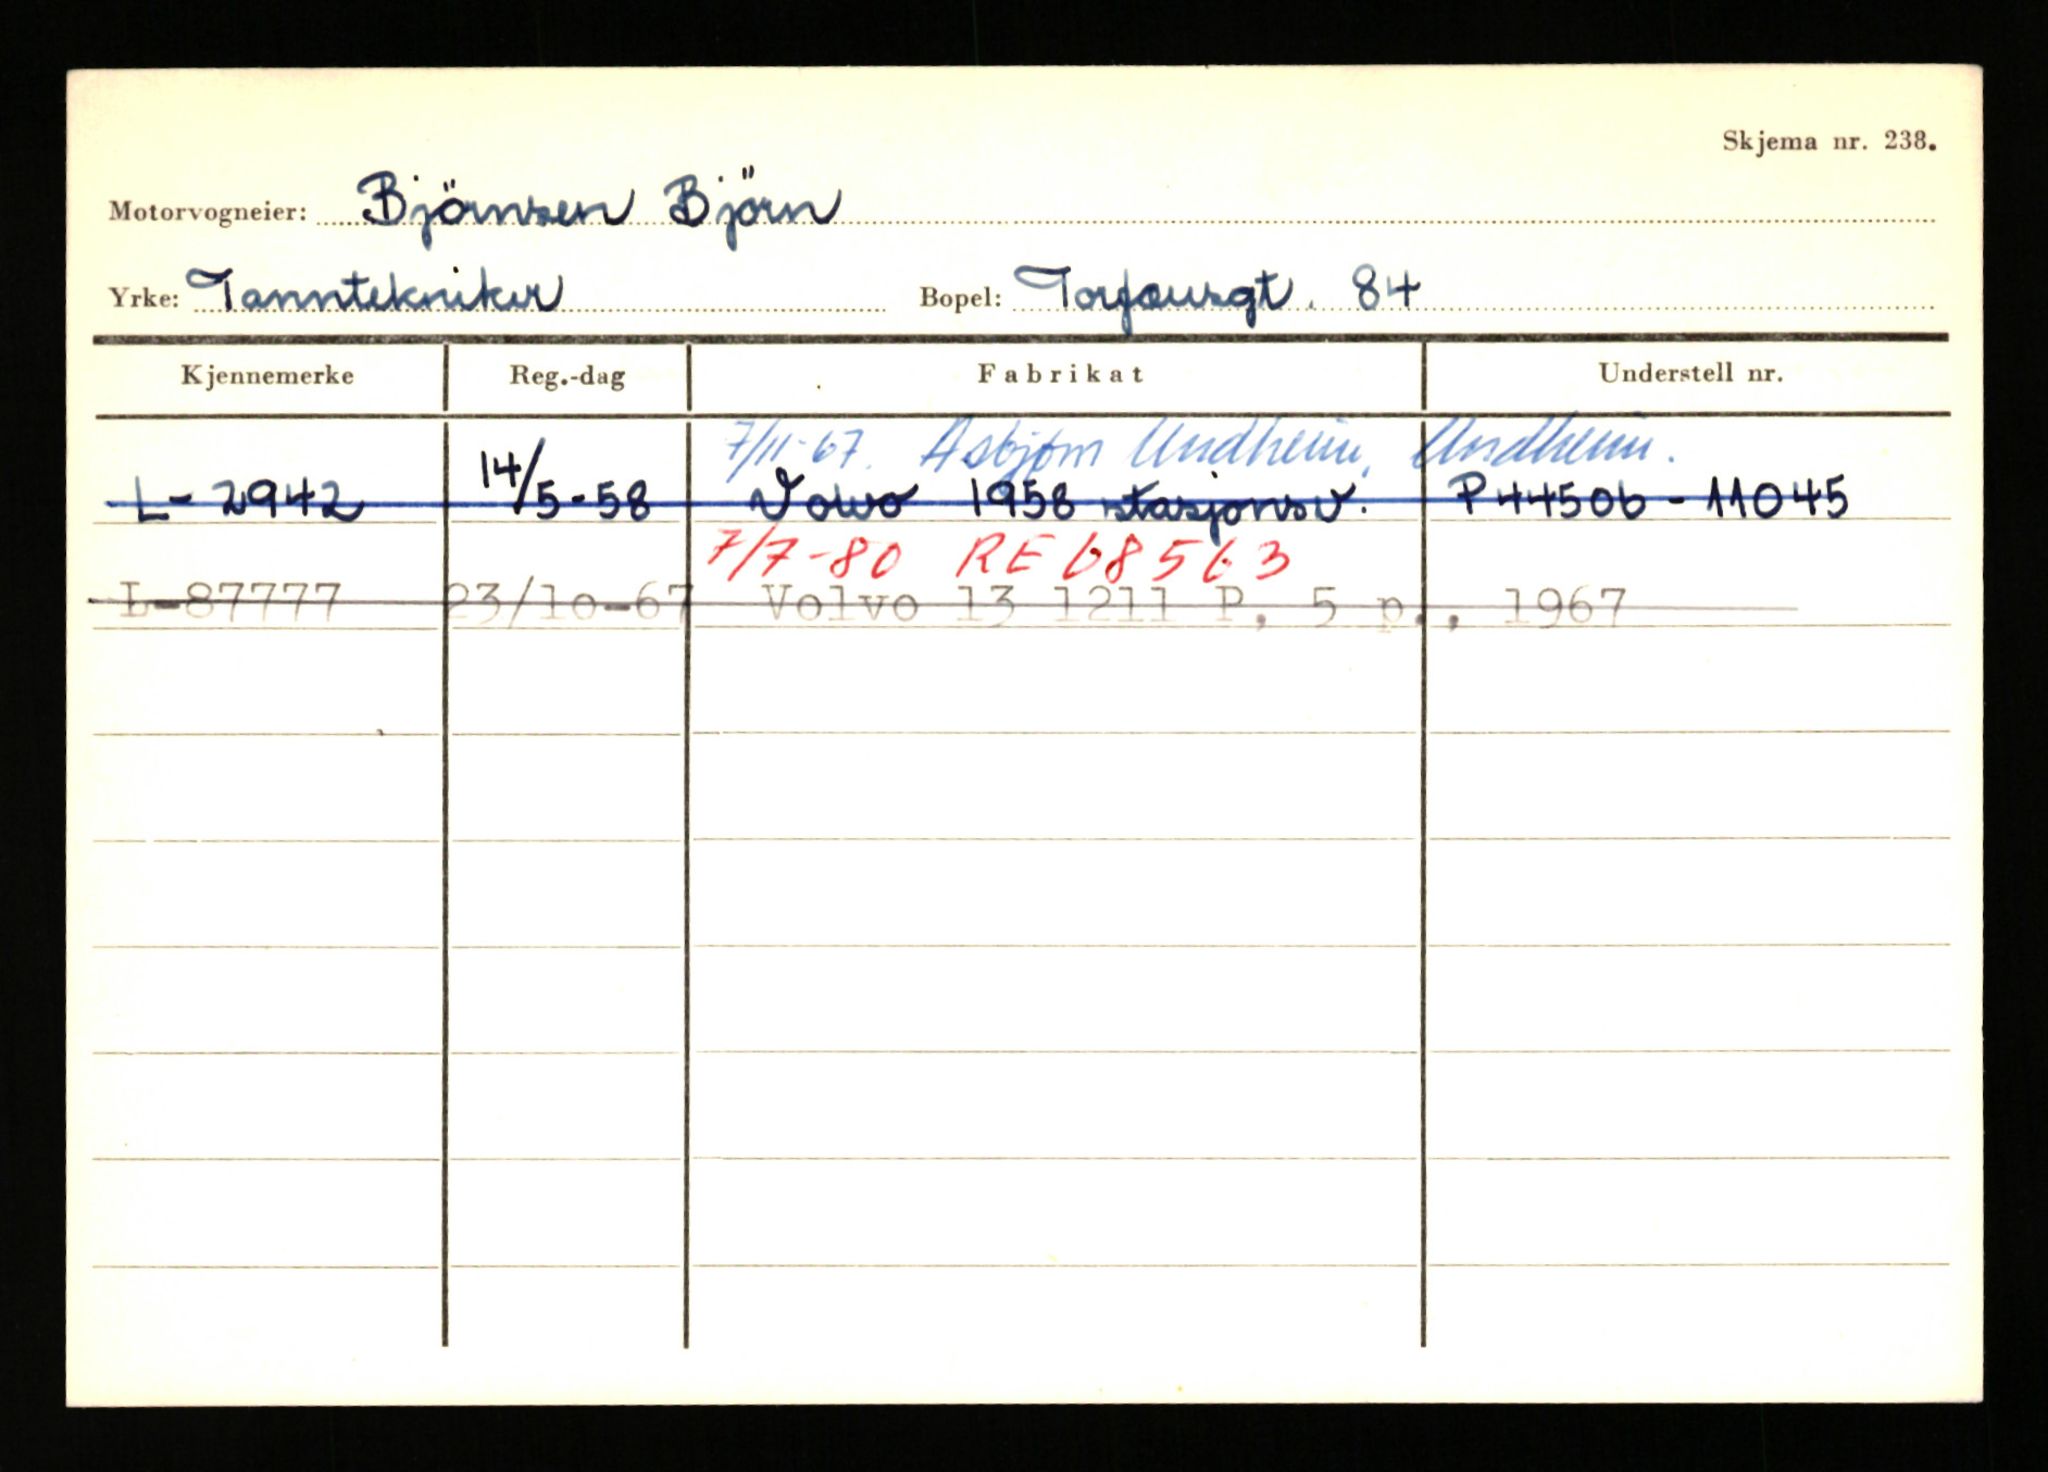 Skjema nr. 238.
Motorvogneier: Björnsen Björn
Yrke: Tanntekniker Bopel: Torfæusgt. 84
Kjennemerke Reg.-dag Fabrikat Understell nr.
7/11-67. Asbjørn Undheim, Undheim.
L-2942 14/5-58 Volvo 1958 stasjonsv. P44506-11045
7/7-80 RE 68563
L-87777 23/10-67 Volvo 13 1211 P, 5 p., 1967